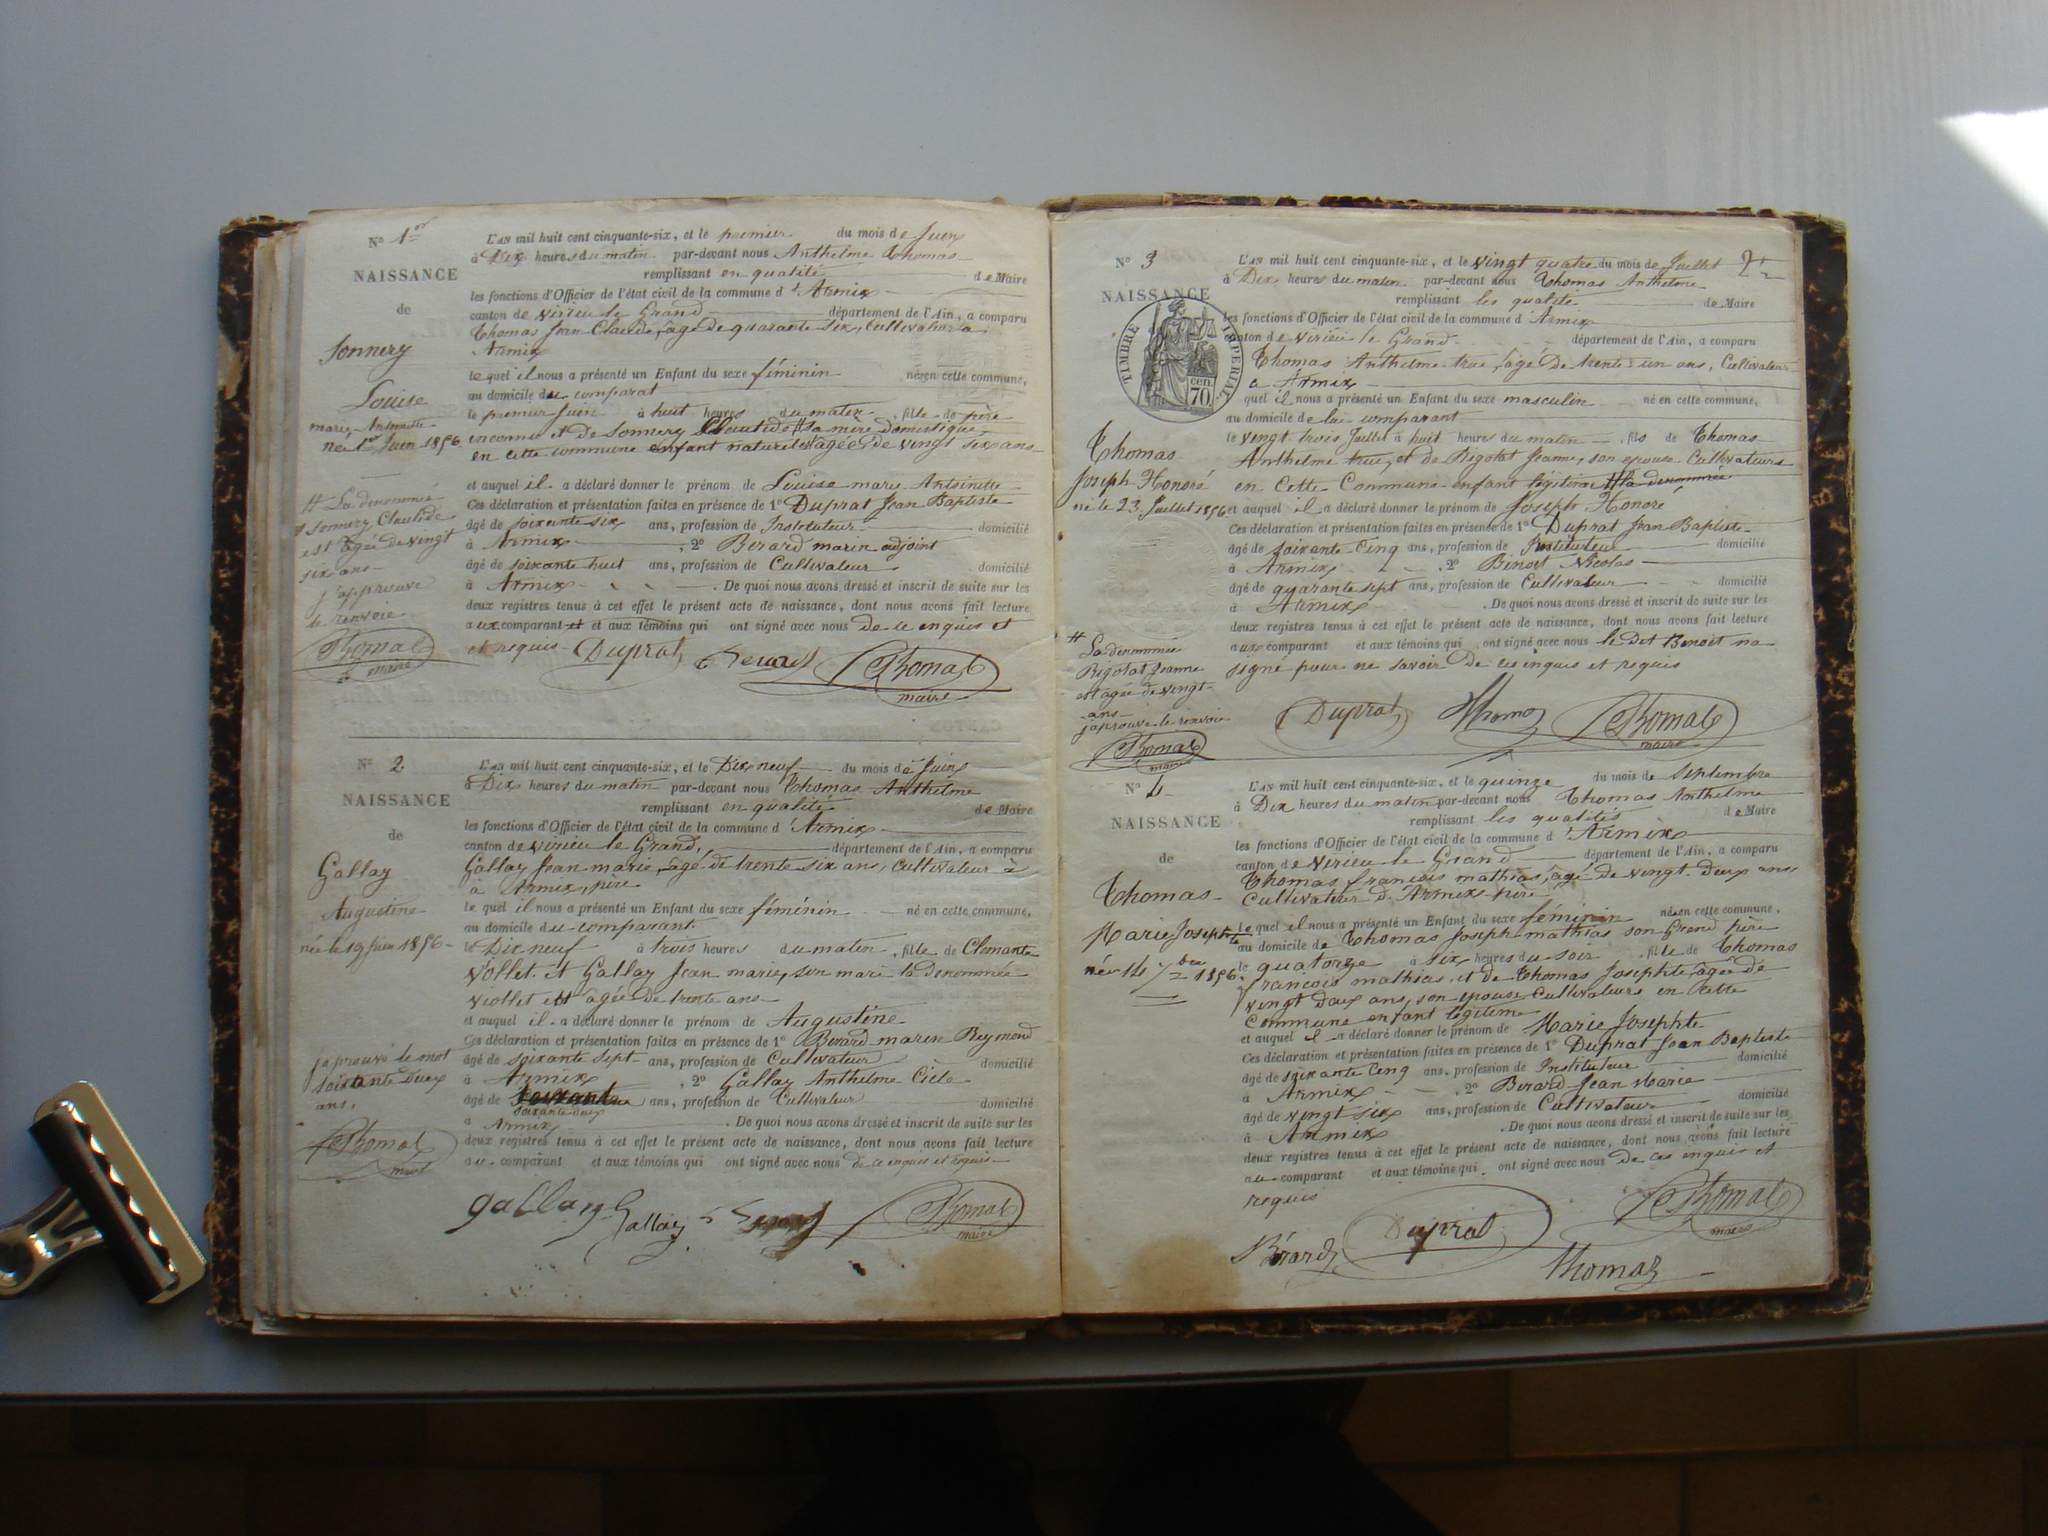 N° 1er
NAISSANCE
de
Sonnery
Louise
marie-Antoinette
née 1er Juin 1856
# La denommée
Sonnery Claudide
est âgée de vingt
six ans
j'approuve
le renvoie
Thomas
maire
L'AN mil huit cent cinquante-six, et le premier du mois de Juin
à Dix heures du matin par-devant nous Anthelme Thomas
remplissant en qualité de Maire
les fonctions d'Officier de l'état civil de la commune d'Armix
canton de virieu le Grand département de l'Ain, a comparu
Thomas Jean Claude, âgé de quarante six, Cultivateur à
Armix
le quel il nous a présenté un Enfant du sexe féminin née en cette commune,
au domicile du comparat
le premier Juin à huit heures du matin, fille de père
inconnu et de Sonnery Claudide # sa mère domestique
en cette commune enfant naturel âgée de vingt six ans
et auquel il a déclaré donner le prénom de Louise marie Antoinette
Ces déclaration et présentation faites en présence de 1° Duprat Jean Baptiste
âgé de soixante six ans, profession de Instituteur domicilié
à Armix, 2° Berard marin adjoint
âgé de soixante huit ans, profession de Cultivateur domicilié
à Armix. De quoi nous avons dressé et inscrit de suite sur les
deux registres tenus à cet effet le présent acte de naissance, dont nous avons fait lecture
aux comparant et et aux témoins qui ont signé avec nous de ce enquis et
et requis Duprat Berard Thomas
maire
N° 2
NAISSANCE
de
Gallay
Augustine
née le 19 Juin 1856
japrouve le mot
soixante Deux
ans,
Thomas
maire
L'AN mil huit cent cinquante-six, et le Dix neuf du mois de Juin
à Dix heures du matin par-devant nous Thomas Anthelme
remplissant en qualité de Maire
les fonctions d'Officier de l'état civil de la commune d'Armix
canton de virieu le Grand, département de l'Ain, a comparu
Gallay Jean marie, âgé de trente six ans, Cultivateur à
à Armix, père
le quel il nous a présenté un Enfant du sexe féminin né en cette commune,
au domicile du comparant
le Dix neuf à trois heures du matin, fille de Clemante
Viollet et Gallay Jean marie, son mari la denommée
Viollet est âgée de trente ans
et auquel il a déclaré donner le prénom de Augustine
Ces déclaration et présentation faites en présence de 1° Berard marin Reymond
âgé de soixante sept ans, profession de Cultivateur domicilié
à Armix, 2° Gallay Anthelme
âgé de ans, profession de Cultivateur domicilié
soixante deux
à Armix. De quoi nous avons dressé et inscrit de suite sur les
deux registres tenus à cet effet le présent acte de naissance, dont nous avons fait lecture
au comparant et aux témoins qui ont signé avec nous de ce enquis et requis
gallay Gallay Berard Thomas
maire
2
N° 3
NAISSANCE
TIMBRE IMPERIAL
70 cen.
Thomas
Joseph Honoré
né le 23 Juillet 1856
# La denommée
Rigotat Jeanne
est âgée de vingt
ans
japrouve le renvoie
Thomas
maire
L'AN mil huit cent cinquante-six, et le vingt quatre du mois de Juillet
à Dix heures du maten par-devant nous Thomas Anthelme
remplissant les qualité de Maire
les fonctions d'Officier de l'état civil de la commune d'Armix
canton de virieu le Grand département de l'Ain, a comparu
Thomas Anthelme true, âgé de trente un ans, Cultivateur
à Armix
quel il nous a présenté un Enfant du sexe masculin né en cette commune,
au domicile de lui comparant
le vingt trois Juillet à huit heures du matin, fils de Thomas
Anthelme true, et de Rigotat Jeanne, son epouse Cultivateurs
en Cette Commune enfant légitime # la denommée
et auquel il a déclaré donner le prénom de Joseph Honoré
Ces déclaration et présentation faites en présence de 1° Duprat Jean Baptiste
âgé de soixante Cinq ans, profession de Instituteur domicilié
à Armix, 2° Binoit Nicolas
âgé de quarante sept ans, profession de Cultivateur domicilié
à Armix. De quoi nous avons dressé et inscrit de suite sur les
deux registres tenus à cet effet le présent acte de naissance, dont nous avons fait lecture
aux comparant et aux témoins qui ont signé avec nous le dit Benoit na
signé pour ne savoir de ces inquis et requis
Duprat Thomas Thomas
maire
N° 4
NAISSANCE
de
Thomas
Marie Josephte
née 14 7bre 1856
L'AN mil huit cent cinquante-six, et le quinze du mois de Septembre
à Dix heures du matin par-devant nous Thomas Anthelme
remplissant les qualités de Maire
les fonctions d'Officier de l'état civil de la commune d'Armix
canton de virieu le Grand département de l'Ain, a comparu
Thomas françois mathias, âgé de vingt Deux ans
Cultivateur d'Armix père
le quel il nous a présenté un Enfant du sexe féminin née en cette commune,
au domicile de Thomas Joseph mathias son Grand père
le quatorze à six heures du soir, fille de Thomas
francois mathias, et de Thomas Josephte, âgée de
vingt Deux ans, son epouse Cultivateurs en Cette
Commune enfant légitime
et auquel il a déclaré donner le prénom de Marie Josephte
Ces déclaration et présentation faites en présence de 1° Duprat Jean Baptiste
âgé de soixante Cinq ans, profession de Instituteur domicilié
à Armix, 2° Berard Jean Marie
âgé de vingt six ans, profession de Cultivateur domicilié
à Armix. De quoi nous avons dressé et inscrit de suite sur les
deux registres tenus à cet effet le présent acte de naissance, dont nous avons fait lecture
au comparant et aux témoins qui ont signé avec nous de ces enquis et
requis
Thomas
maire
Bérard Duprat Thomas